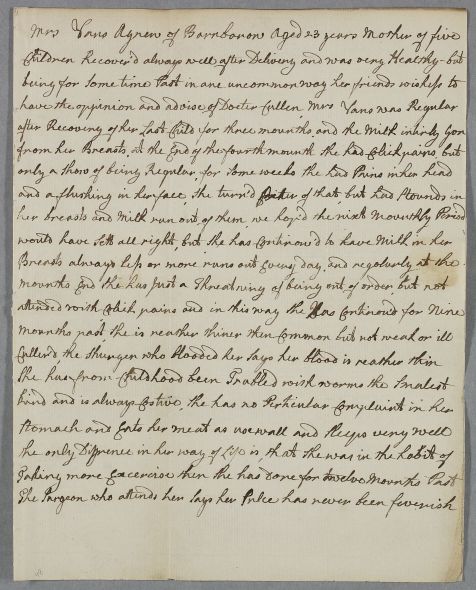 Mrs Vans Agnew of Barnbarow Aged 23 years Mother of five
Children Recover'd always well after Delivery and was very Healthy - but
being for Some time Past in ane uncommon way her friends wishess to
have the oppinion and advise of Docter Cullen. Mrs Vans was Regular
after Recovery of her Last Child for three mounths and the Milk nearly Gon
from her Breasts, at the End of the fourth mounth she had Colick pains, but
only a Show of being Regular, for Some weeks she had Pains in her head
and a flushing in her face She turn'd of that but had Stounds in
her breasts and Milk run out of them, we hop'd the nixt Mounthly Period
would have Sett all right, but she has Continou'd to have Milk in her
Breasts always less or more runs out Every day, and regolerly at the
mounths End she has Just a Threatning of being out of order but not
attended with Colick pains and in this way she has Continoud for Nine
Mounths past She is neather thiner then Common but not weak or ill
Culler'd the Shurgen who blooded her Says her blood is neather thin
She has from Childhood been Trubled with worms the Smalest
kind and is always Costive She has no Perticular Complaint in her
Stomach and Eats her meat as usewall and Sleeps very well
the only Diffrence in her way of Life is that She was in the habits of
Taking more Excercise then She has done for twelve Mounths Past
The Surgeon who attends her Says her Pulce has never been feverish